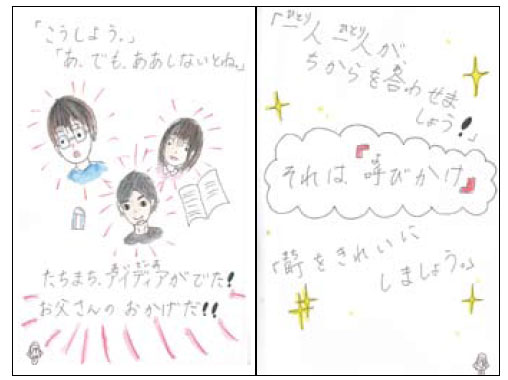 「こうしよう。」
「あ、でも、ああしないとね。」
たちまち、アイディアがでた!
お父さんのおかげだ!!
「一人一人が、
ちからを合わせま
しょう!」
それは、『呼びかけ』
「町をきれいに
しましょう。」